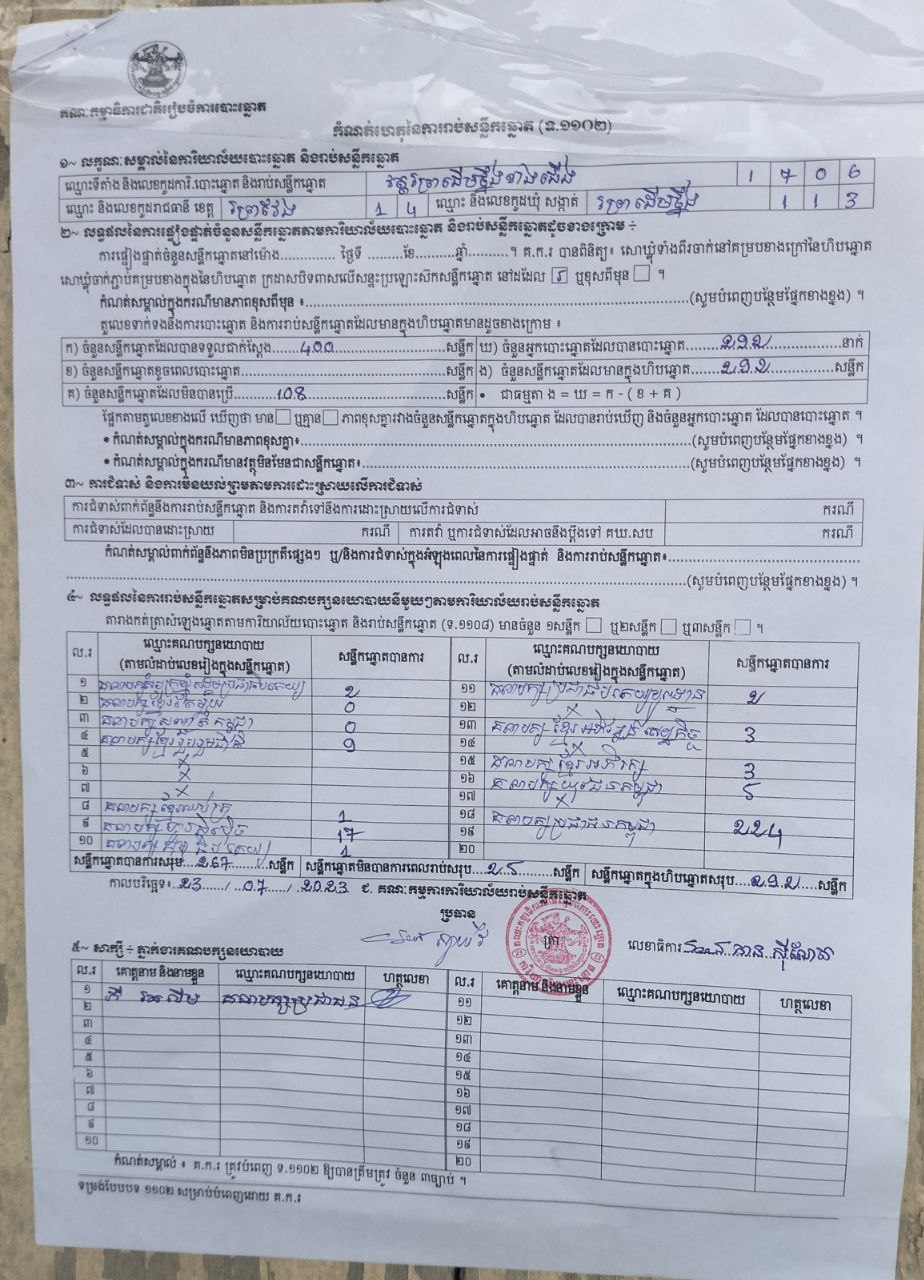 គណៈកម្មាធិការជាតិរៀបចំការបោះឆ្នោត
កំណត់ហេតុនៃការរាប់សន្លឹកឆ្នោត (ទ.១១០២)
១~ លក្ខណៈសម្គាល់នៃការិយាល័យបោះឆ្នោត និងរាប់សន្លឹកឆ្នោត
ឈ្មោះទីតាំង និងលេខកូដការិ.បោះឆ្នោត និងរាប់សន្លឹកឆ្នោត វត្តព្រាជើមថ្នឹងខាងជើង 1706
ឈ្មោះ និងលេខកូដរាជធានី ខេត្ត ព្រៃវែង 14 ឈ្មោះ និងលេខកូដឃុំ សង្កាត់ 113
២~ លទ្ធផលនៃការផ្ទៀងផ្ទាត់ចំនួនសន្លឹកឆ្នោតតាមការិយាល័យបោះឆ្នោត និងរាប់សន្លឹកឆ្នោតដូចខាងក្រោម ÷
ការផ្ទៀងផ្ទាត់ចំនួនសន្លឹកឆ្នោតនៅម៉ោង............. ថ្ងៃទី ........ខែ.........ឆ្នាំ.........។ គ.ក.រ បានពិនិត្យ៖ សោឃ្លុំទាំងពីរចាក់នៅគម្របខាងក្រៅនៃហិបឆ្នោត
សោឃ្លុំចាក់ភ្ជាប់គម្របខាងក្នុងនៃហិបឆ្នោត ក្រដាសបិទពាសលើសន្ទះប្រឡោះស៊កសន្លឹកឆ្នោត នៅដដែល ឬខុសពីមុន ។
កំណត់សម្គាល់ក្នុងករណីមានភាពខុសពីមុន ៖...........(សូមបំពេញបន្ថែមផ្នែកខាងខ្នង) ។
តួលេខទាក់ទងនឹងការបោះឆ្នោត និងការរាប់សន្លឹកឆ្នោតដែលមានក្នុងហិបឆ្នោតមានដូចខាងក្រោម ៖
ក) ចំនួនសន្លឹកឆ្នោតដែលបានទទួលជាក់ស្តែង.......400..........សន្លឹក ឃ) ចំនួនអ្នកបោះឆ្នោតដែលបានបោះឆ្នោត........២៩២..........នាក់
ខ) ចំនួនសន្លឹកឆ្នោតខូចពេលបោះឆ្នោត..........សន្លឹក ង) ចំនួនសន្លឹកឆ្នោតដែលមានក្នុងហិបឆ្នោត.......២៩២..........សន្លឹក
គ) ចំនួនសន្លឹកឆ្នោតដែលមិនបានប្រើ.......108..........សន្លឹក • ជាធម្មតា ង = ឃ = ក - ( ខ + គ )
ផ្អែកតាមតួលេខខាងលើ ឃើញថា មាន ឬគ្មាន ភាពខុសគ្នារវាងចំនួនសន្លឹកឆ្នោតក្នុងហិបឆ្នោត ដែលបានរាប់ឃើញ និងចំនួនអ្នកបោះឆ្នោត ដែលបានបោះឆ្នោត ។
• កំណត់សម្គាល់ក្នុងករណីមានភាពខុសគ្នា៖..........(សូមបំពេញបន្ថែមផ្នែកខាងខ្នង) ។
• កំណត់សម្គាល់ក្នុងករណីមានវត្ថុមិនមែនជាសន្លឹកឆ្នោត៖..........(សូមបំពេញបន្ថែមផ្នែកខាងខ្នង) ។
៣~ ការជំទាស់ និងការមិនយល់ព្រមតាមការដោះស្រាយលើការជំទាស់
ការជំទាស់ពាក់ព័ន្ធនឹងការរាប់សន្លឹកឆ្នោត និងការតវ៉ាទៅនឹងការដោះស្រាយលើការជំទាស់ ករណី
ការជំទាស់ដែលបានដោះស្រាយ ករណី ការតវ៉ា ឬការជំទាស់ដែលអាចនឹងប្តឹងទៅ គឃ.សប ករណី
កំណត់សម្គាល់ពាក់ព័ន្ធនឹងភាពមិនប្រក្រតីផ្សេងៗ ឬ/និងការជំទាស់ក្នុងអំឡុងពេលនៃការផ្ទៀងផ្ទាត់ និងការរាប់សន្លឹកឆ្នោត៖..........
..........(សូមបំពេញបន្ថែមផ្នែកខាងខ្នង) ។
៤~ លទ្ធផលនៃការរាប់សន្លឹកឆ្នោតសម្រាប់គណបក្សនយោបាយនីមួយៗតាមការិយាល័យរាប់សន្លឹកឆ្នោត
តារាងកត់ត្រាសំឡេងឆ្នោតតាមការិយាល័យបោះឆ្នោត និងរាប់សន្លឹកឆ្នោត (ទ.១១០៨) មានចំនួន ១សន្លឹក ឬ២សន្លឹក ឬ៣សន្លឹក ។
ល.រ ឈ្មោះគណបក្សនយោបាយ (តាមលំដាប់លេខរៀងក្នុងសន្លឹកឆ្នោត) សន្លឹកឆ្នោតបានការ ល.រ ឈ្មោះគណបក្សនយោបាយ (តាមលំដាប់លេខរៀងក្នុងសន្លឹកឆ្នោត) សន្លឹកឆ្នោតបានការ
១ គណបក្សសំបុកឃ្មុំសង្គមប្រជាធិបតេយ្យ ២ ១១ គណបក្សប្រជាធិបតេយ្យមូលដ្ឋាន ២
២ គណបក្សខ្មែរតែមួយ 0 ១២ ×
៣ គណបក្សសញ្ជាតិកម្ពុជា 0 ១៣ គណបក្សខ្មែរអភិវឌ្ឍន៍សេដ្ឋកិច្ច 3
៤ គណបក្សខ្មែររួបរួមជាតិ 9 ១៤ ×
៥ × ១៥ គណបក្សខ្មែរអភិរក្ស 3
៦ × ១៦ គណបក្សយុវជនកម្ពុជា 5
៧ × ១៧ ×
៨ គណបក្សខ្មែរឈប់ក្រ 1 ១៨ គណបក្សប្រជាជនកម្ពុជា 224
៩ គណបក្សហ្វ៊ុនស៊ិនប៉ិច 17 ១៩
១០ 1 ២០
សន្លឹកឆ្នោតបានការសរុប....267......សន្លឹក សន្លឹកឆ្នោតមិនបានការពេលរាប់សរុប....25......សន្លឹក សន្លឹកឆ្នោតក្នុងហិបឆ្នោតសរុប...២៩២.....សន្លឹក
កាលបរិច្ឆេទ៖..23...../...07...../...2023 ជ. គណៈកម្មការការិយាល័យរាប់សន្លឹកឆ្នោត
ប្រធាន
ត្រា
លេខាធិការ
៥~ សាក្សី ÷ ភ្នាក់ងារគណបក្សនយោបាយ
ល.រ គោត្តនាម និងនាមខ្លួន ឈ្មោះគណបក្សនយោបាយ ហត្ថលេខា ល.រ គោត្តនាម និងនាមខ្លួន ឈ្មោះគណបក្សនយោបាយ ហត្ថលេខា
១ គណបក្សប្រជាជន ១១
២ ១២
៣ ១៣
៤ ១៤
៥ ១៥
៦ ១៦
៧ ១៧
៨ ១៨
៩ ១៩
១០ ២០
កំណត់សម្គាល់ ៖ គ.ក.រ ត្រូវបំពេញ ទ.១១០២ ឱ្យបានត្រឹមត្រូវ ចំនួន ៣ច្បាប់ ។
ទម្រង់បែបបទ ១១០២ សម្រាប់បំពេញដោយ គ.ក.រ